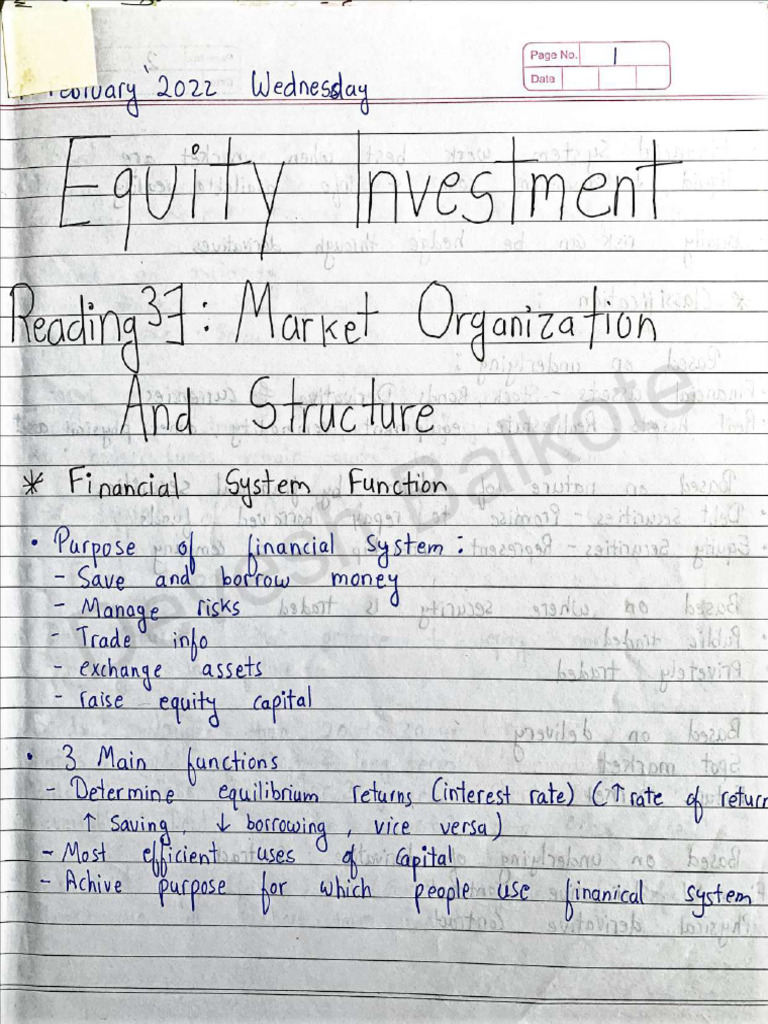 Page No. 1
Date
February 2022 Wednesday
Equity Investment
Reading 37: Market Organization
And Structure
* Financial System Function
• Purpose of financial system:
- Save and borrow money
- Manage risks
- Trade info
- exchange assets
- raise equity capital
• 3 Main functions
- Determine equilibrium returns (interest rate) (↑ rate of return
↑ saving, ↓ borrowing, vice versa)
- Most efficient uses of capital
- Achive purpose for which people use finanical system
Balkote